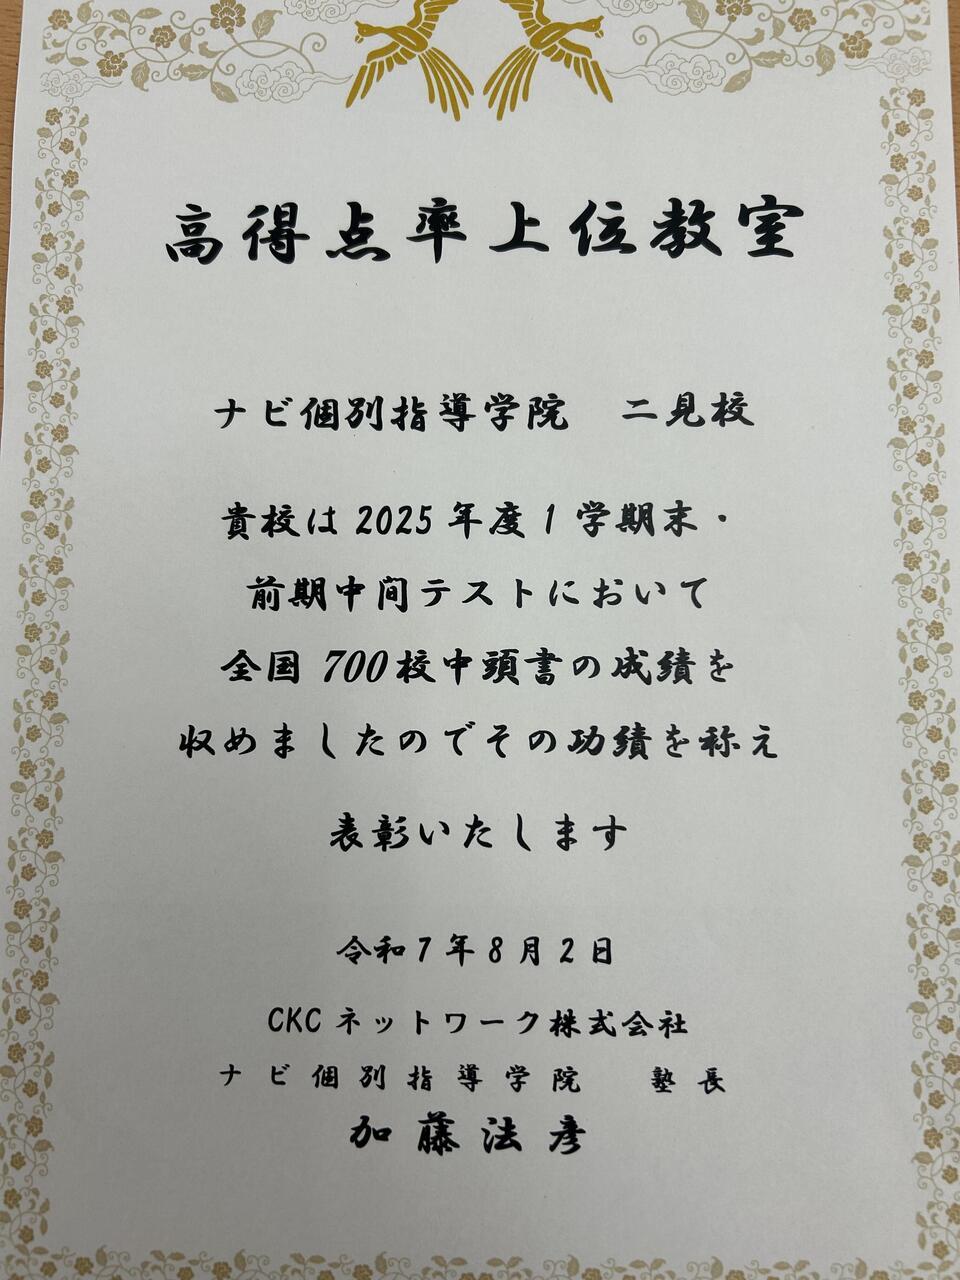 高得点率上位教室
ナビ個別指導学院　二見校
貴校は2025年度1学期末・
前期中間テストにおいて
全国700校中頭書の成績を
収めましたのでその功績を称え
表彰いたします
令和7年8月2日
CKCネットワーク株式会社
ナビ個別指導学院　塾長
加藤法彦